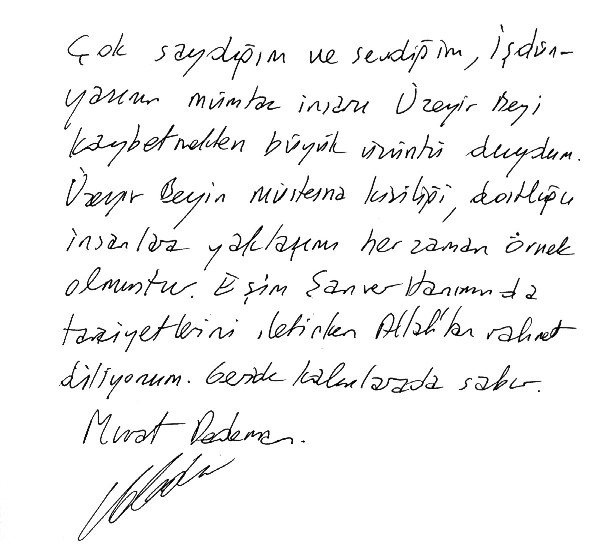 Çok saydığım ve sevdiğim, İşdün-
yasının mümtaz insanı Üzeyir Beyi
kaybetmekten büyük üzüntü duydum.
Üzeyir Beyin müstesna kişiliği, dostluğu
insanlara yaklaşımı her zaman örnek
olmuştur. Eşim Şanver Hanımında
taziyetlerini iletirken Allah'tan rahmet
diliyorum. Geride kalanlarada sabır.
Murat Dedeman.